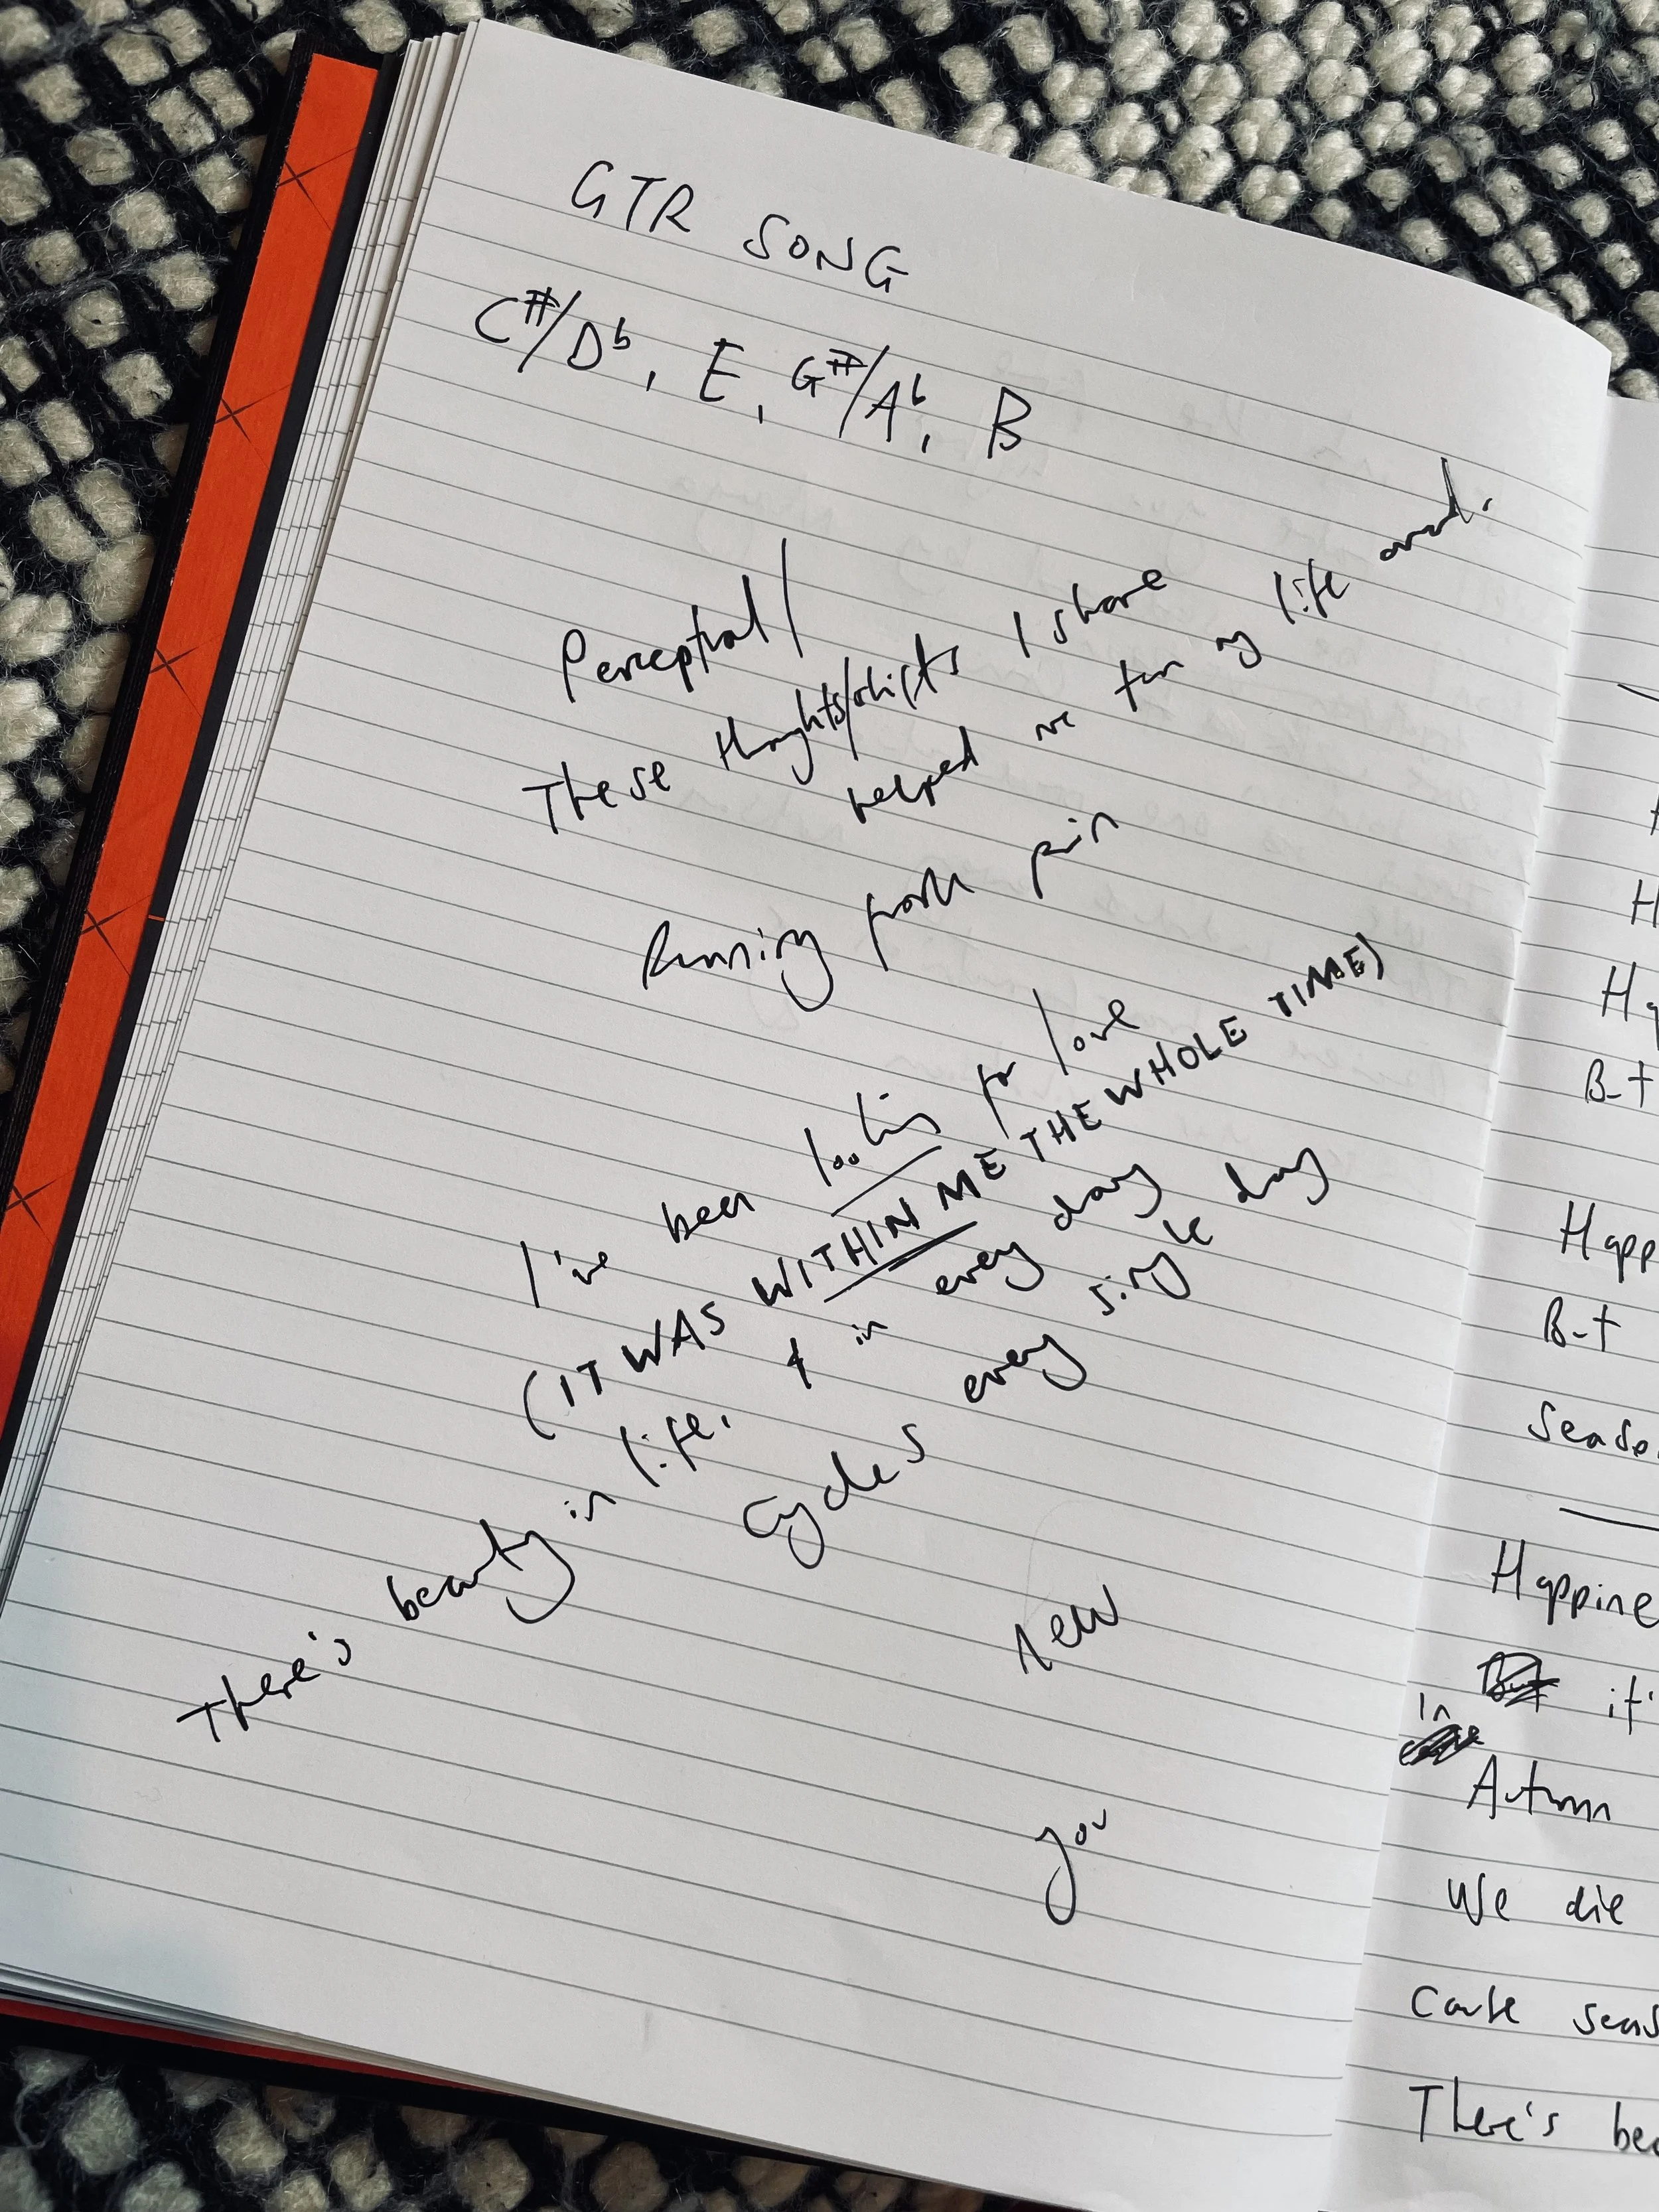 GTR SONG
C#/Db, E, G#/Ab, B
Perceptual/
These thoughts/shifts I share
helped me turn my life around.
Running from pain
I've been looking for love
(IT WAS WITHIN ME THE WHOLE TIME)
There's beauty in life, & in every day
cycles every single day
new
you
H
Ha
But
Happ
But
Seaso
Happine
But it'
In
Autumn
We die
Cause seas
There's bea